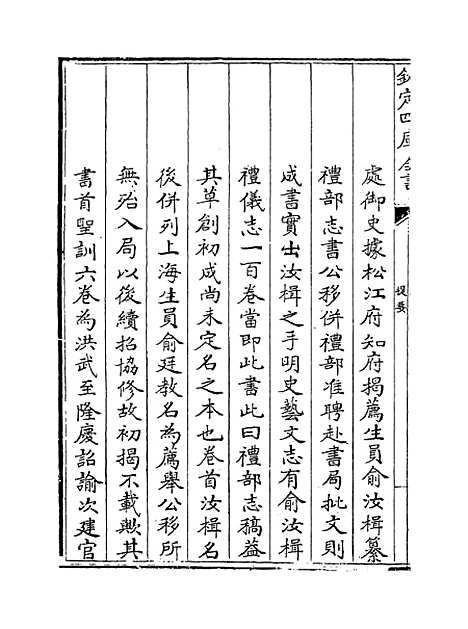 欽定四庫全書
提要
處御史據松江府知府揭薦生員俞汝楫纂
禮部志書公移併禮部准聘赴書局批文則
成書實出汝楫之手明史藝文志有俞汝楫
禮儀志一百卷當即此書此曰禮部志稿益
其草創初成尚未定名之本也卷首汝楫名
後併列上海生員俞廷教名為薦舉公移所
無殆入局以後續招協修故初揭不載歟其
書首聖訓六卷為洪武至隆慶詔諭次建官